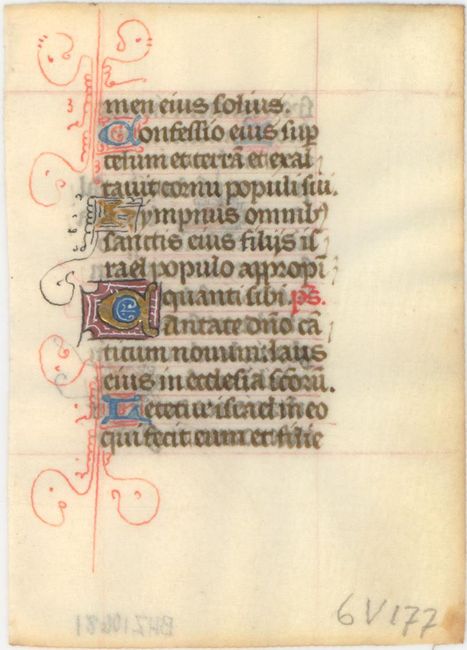 men eius solius.
Confessio eius sup
celum et terrā et exal
tauit cornu populi sui.
Hympnus omnib9
sanctis eius filijs is
rael populo appropī
quanti sibi. ps.
Cantate dn̄o cā
ticum nouum: laus
eius in ecclesia sc̄oru.
Letetur israel in eo
qui fecit eum et filie
6 V 177